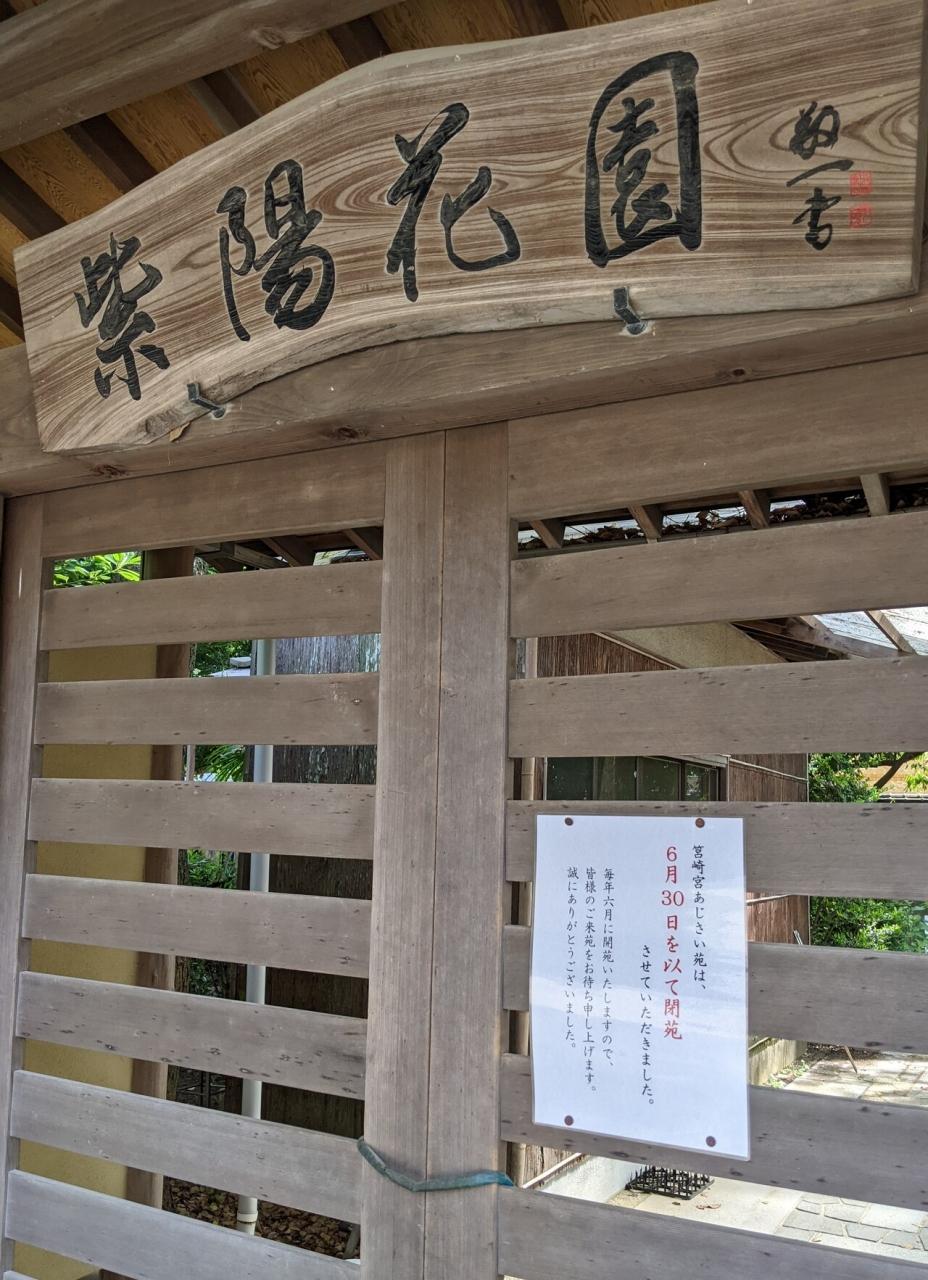 紫陽花園
敬一書
筥崎宮あじさい苑は、
6月30日を以て閉苑
させていただきました。
毎年六月に開苑いたしますので、
皆様のご来苑をお待ち申し上げます。
誠にありがとうございました。